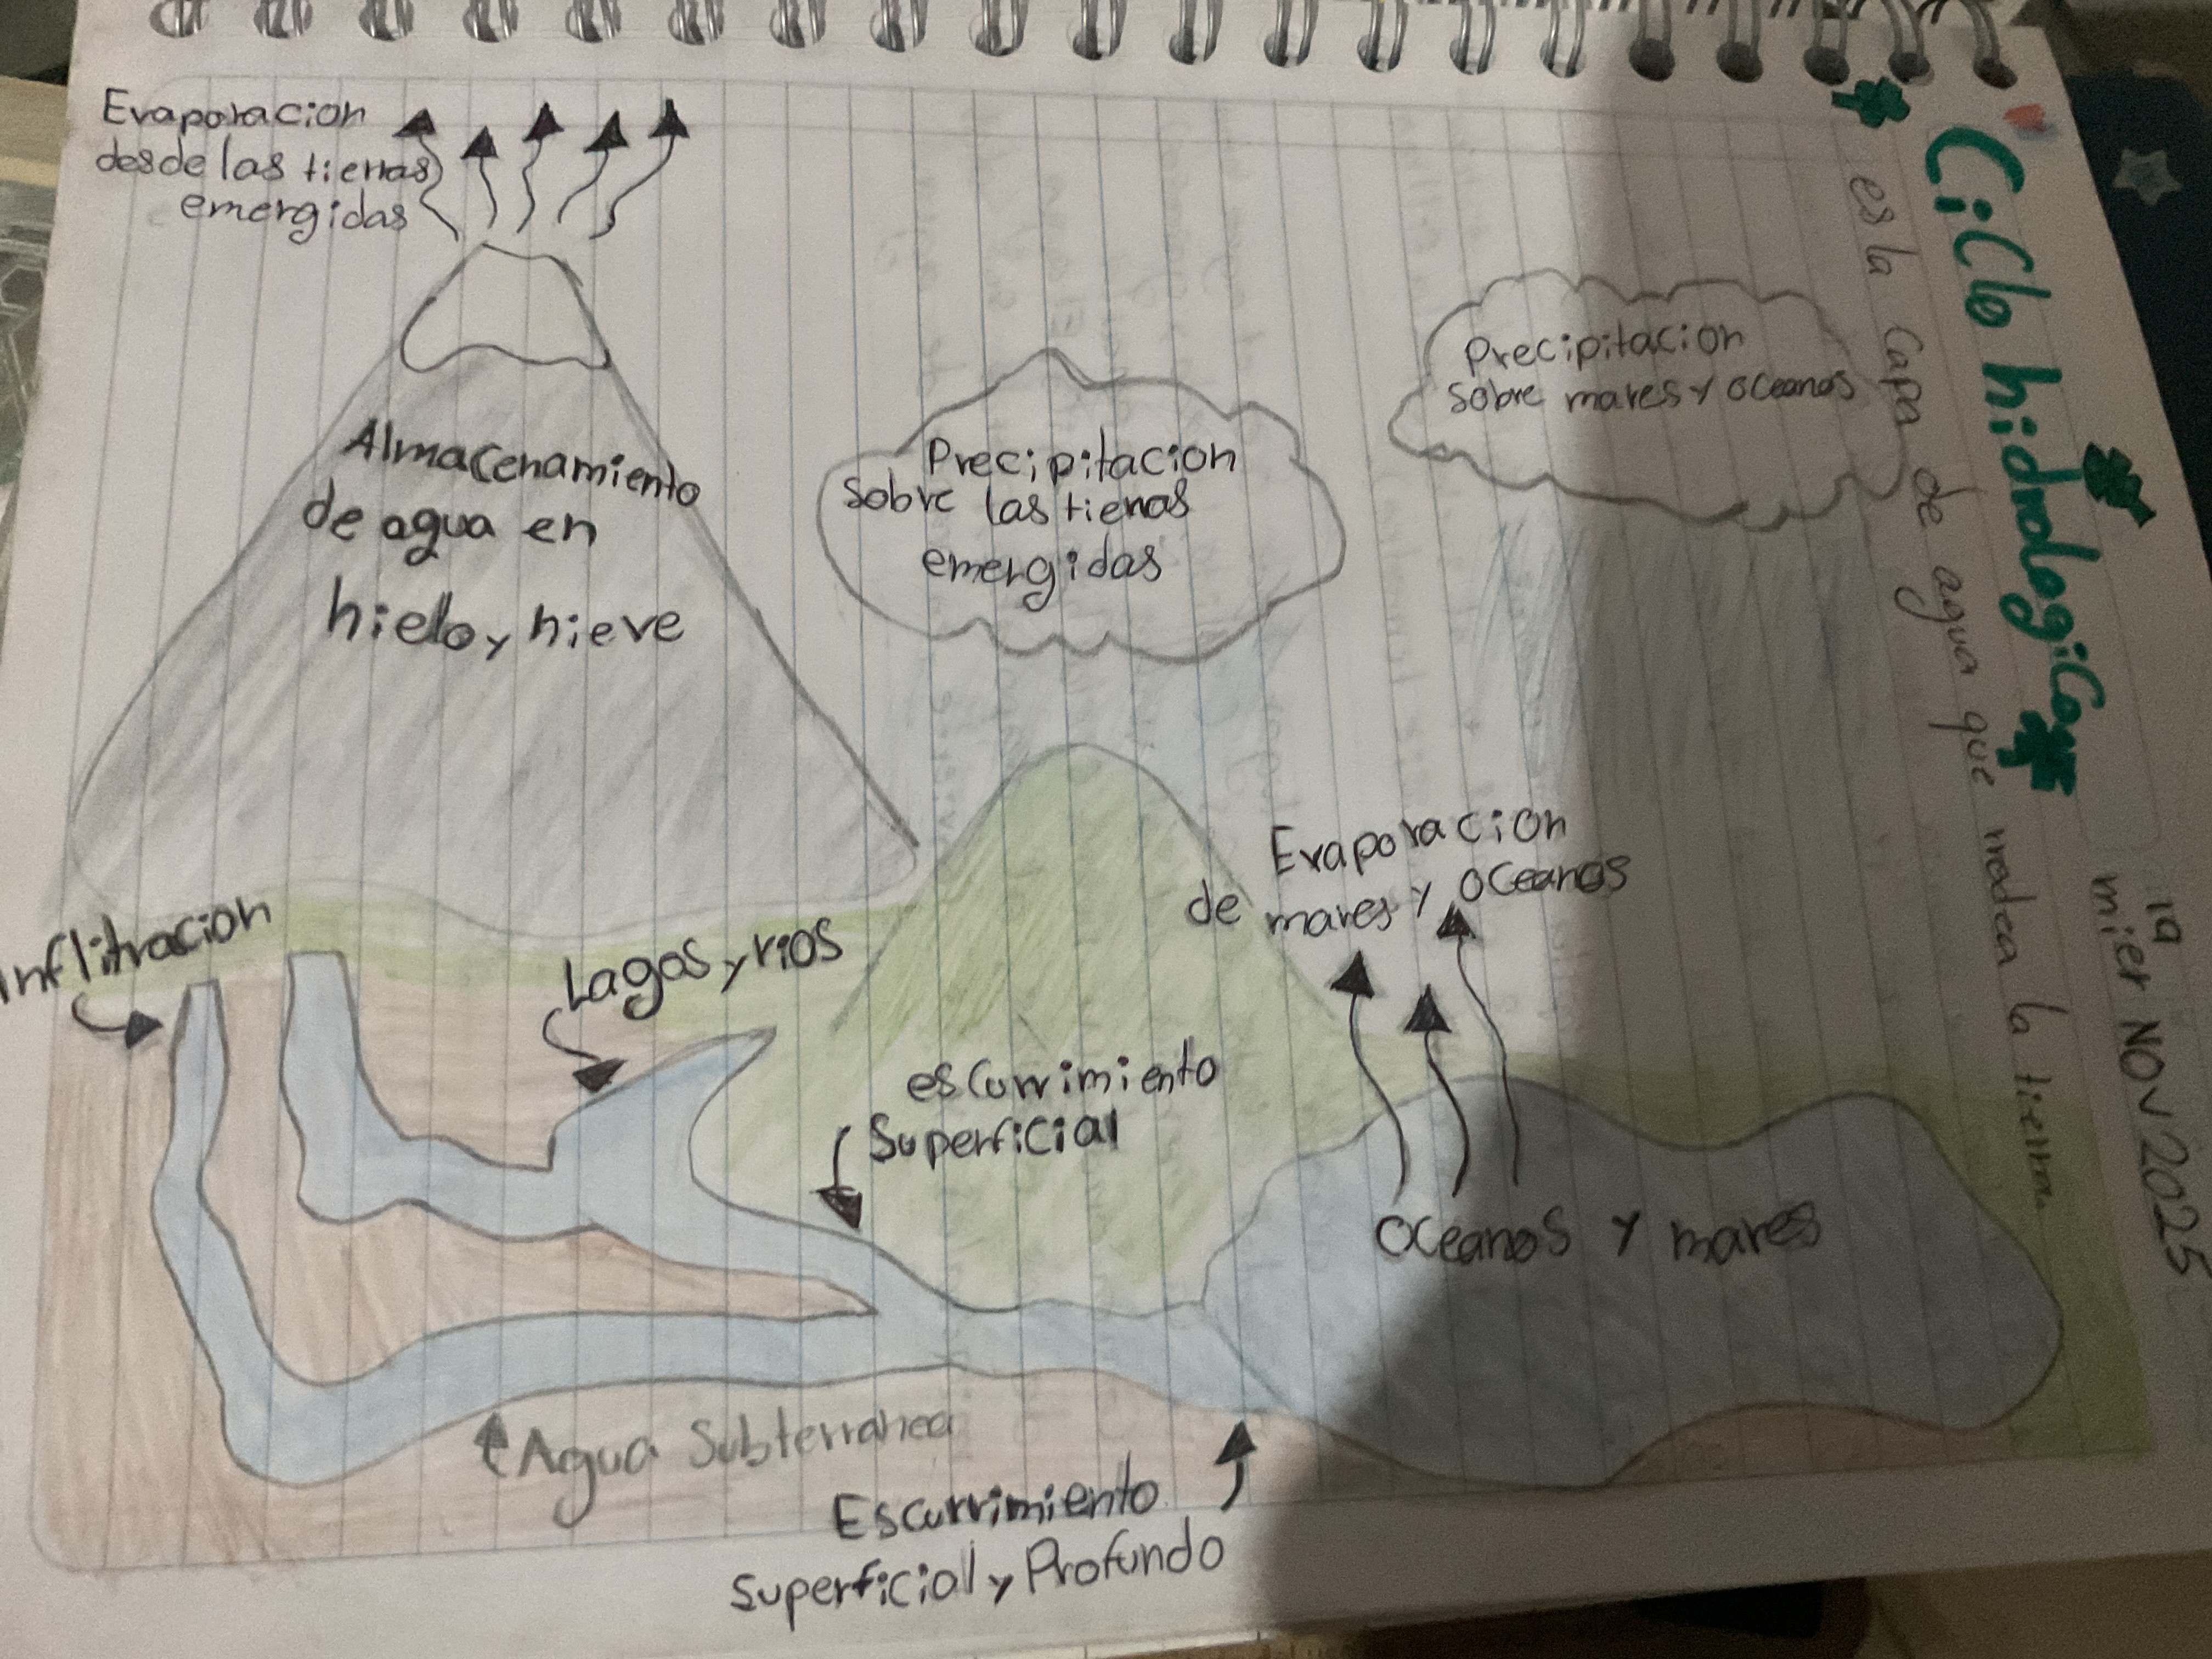 Ciclo hidrologico
es la capa de agua que rodea la tierra
19
mier NOV 2025
Evaporacion
desde las tierras
emergidas
Almacenamiento
de agua en
hielo y nieve
Precipitacion
sobre las tierras
emergidas
Precipitacion
sobre mares y oceanos
Evaporacion
de mares y oceanos
Inflitracion
Lagos y rios
escurrimiento
Superficial
oceanos y mares
Agua Subterranea
Escurrimiento
superficial y Profundo